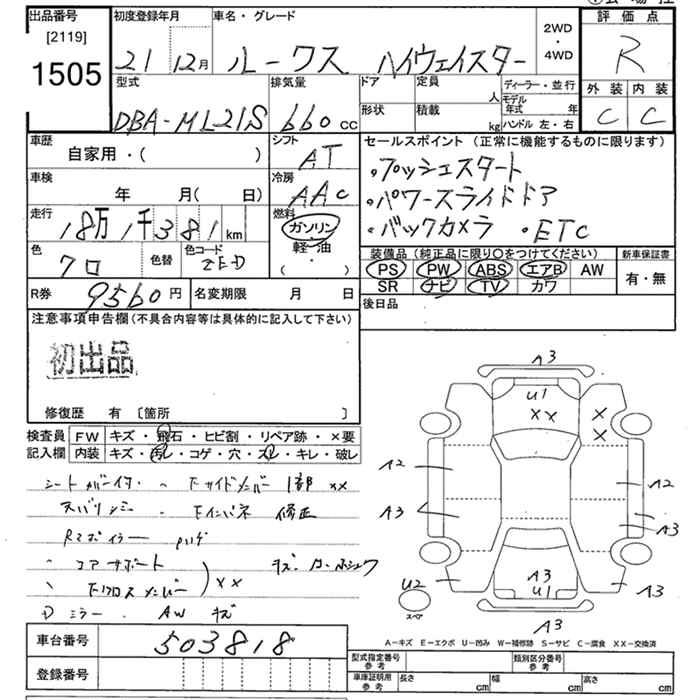 出品番号
[2119]
1505
初度登録年月
21 12月
車名・グレード
ルークス ハイウェイスター
2WD
・
4WD
評価点
R
外装 内装
C C
型式
DBA-ML21S
排気量
660cc
ドア
形状
定員
人
積載
kg
ディーラー・並行
モデル年式 年
ハンドル 左・右
車歴
自家用・( )
シフト
AT
車検
年 月( 日)
冷房
AAC
走行
18万1千381km
燃料
ガソリン
軽・油
・
色
クロ
色替
色コード
ZED
R券
9560円
名変期限 月 日
セールスポイント(正常に機能するものに限ります)
・プッシュスタート
・パワースライドドア
・バックカメラ ・ETC
装備品(純正品に限り○をつけてください)
PS PW ABS エアB AW
SR ナビ TV カワ
新車保証書
有・無
後日品
注意事項申告欄(不具合内容等は具体的に記入して下さい)
初出品
修復歴 有 [箇所 ]
検査員
記入欄
FW キズ・飛石・ヒビ割・リペア跡・×要
内装 キズ・汚レ・コゲ・穴・スレ・キレ・破レ
シートカバー付
修正
コアサポート
XX
Dミラー・AWキズ
A3
U1
XX
X
X
A2
A3
A2
A3
A3
U1
U2
スペア
A3
A3
A-キズ E-エクボ U-凹み W-補修跡 S-サビ C-腐食 XX-交換済
車台番号
503818
登録番号
型式指定番号
参考
類別区分番号
参考
車庫証明用
参考
長さ cm
幅 cm
高さ cm